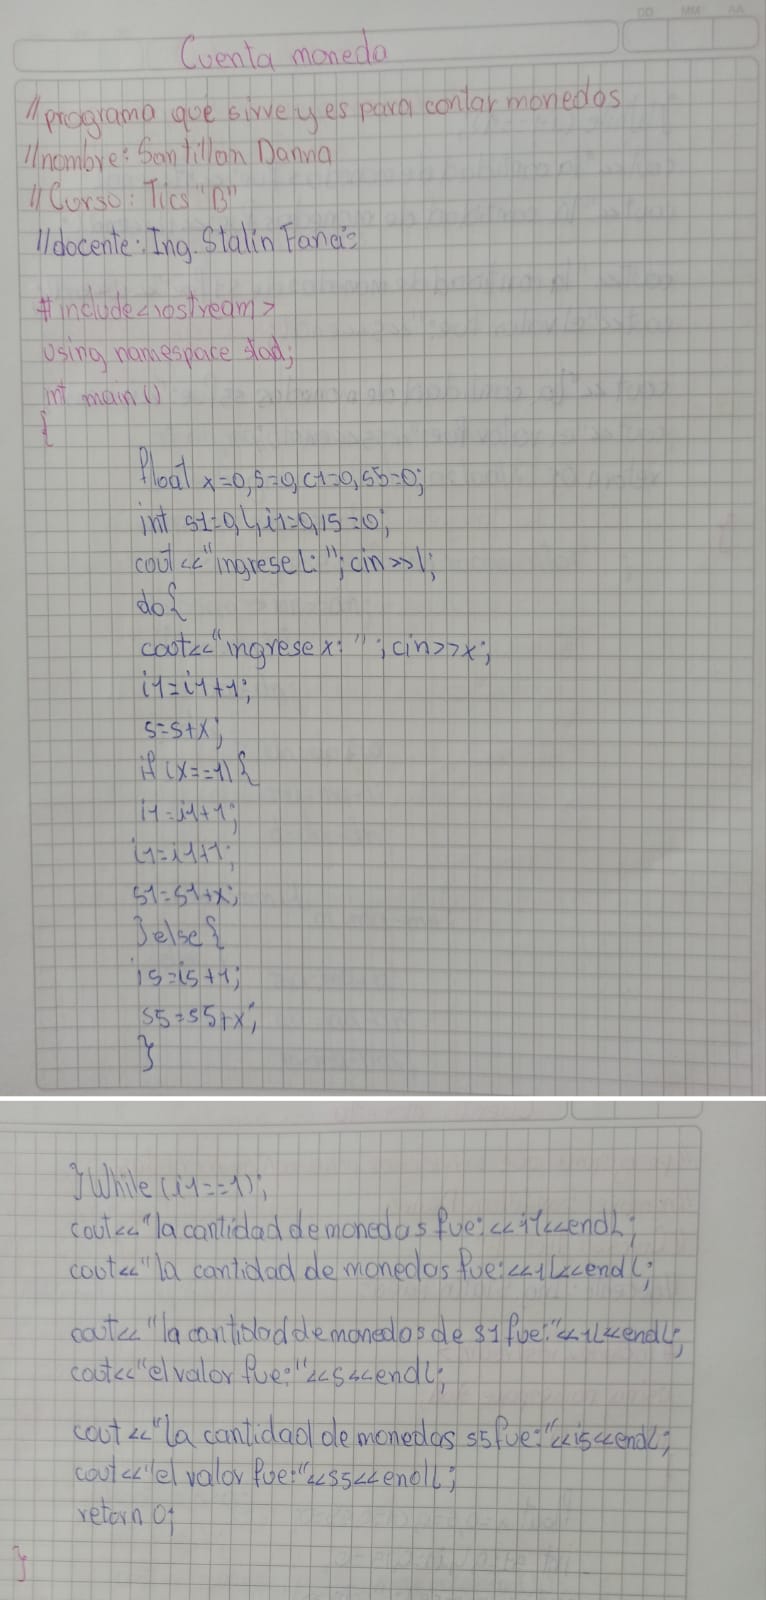 DD MM AA
Cuenta moneda
//programa que sirve y es para contar monedas
//nombre: Santillan Danna
//Curso: Tics "B"
//docente: Ing. Stalin
#include<iostream>
using namespace stad;
int main()
{
float x=0,s=0,c1=0,s5=0;
int s1=0,l,i1=0,i5=0;
cout<<"ingrese l: ";cin>>l;
do{
cout<<"ingrese x: ";cin>>x;
i1=i1+1;
s=s+x;
if (x==1){
i1=i1+1;
i1=i1+1;
s1=s1+x;
}else{
i5=i5+1;
s5=s5+x;
}
}While (i1==1);
cout<<"la cantidad de monedas fue:<<i1<<endl;
cout<<"la cantidad de monedas fue:<<1l<<endl;
cout<<"la cantidad de monedas de s1 fue:"<<1l<<endl;
cout<<"el valor fue:"<<s<<endl;
cout<<"la cantidad de monedas s5 fue:"<<i5<<endl;
cout<<"el valor fue:"<<s5<<endl;
return 0;
}